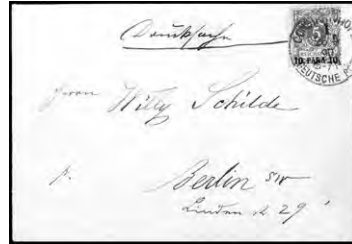 Drucksache
10 PARA 10
DEUTSCHE P
Herrn Willy Schilde
Berlin SW
Linden st 29